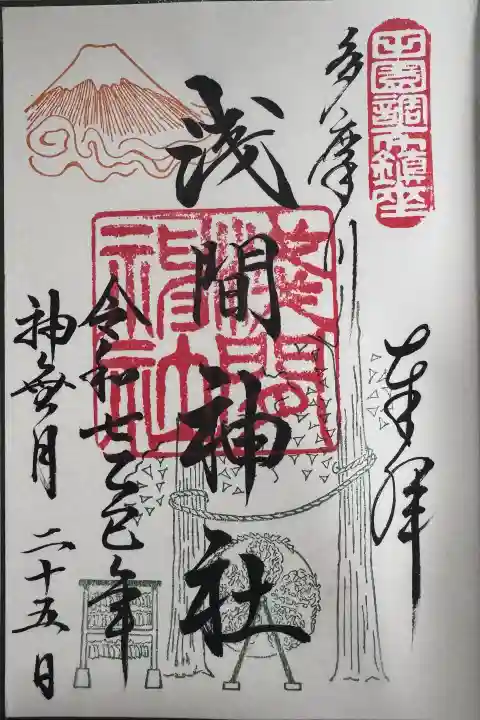 東京調布鎮座
奉拝
多摩川
浅間神社
浅間神社
令和七乙巳年
神無月 二十五日